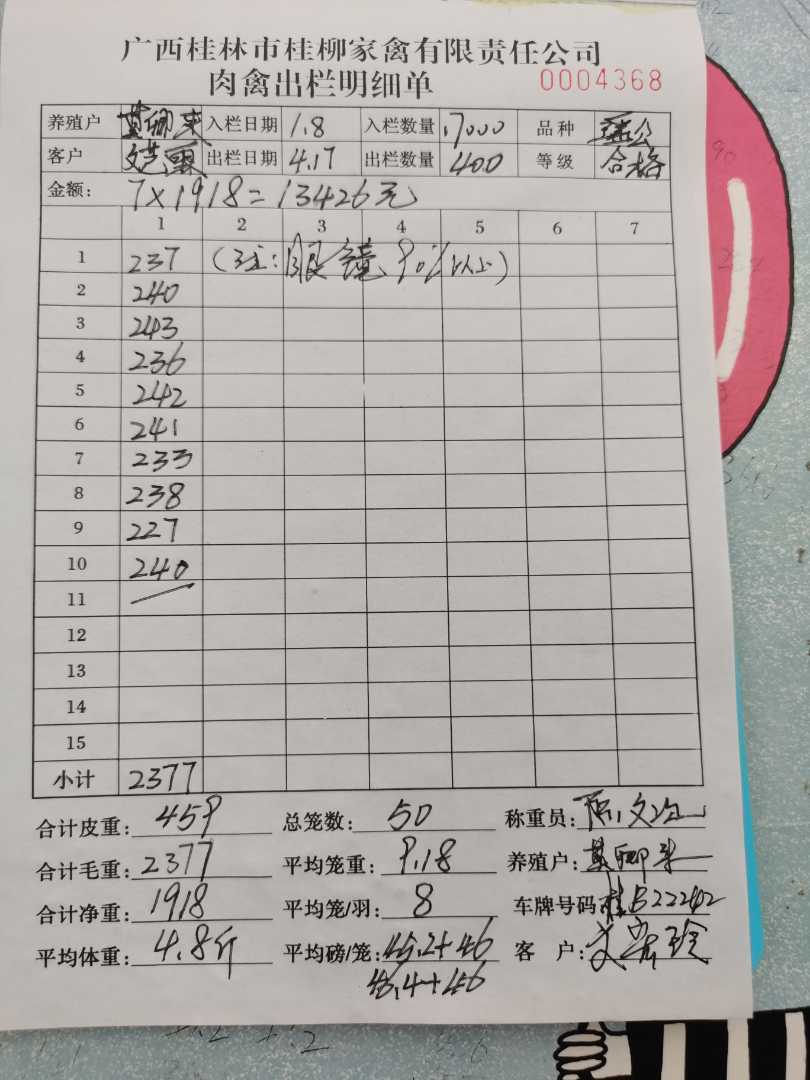 广西桂林市桂柳家禽有限责任公司
肉禽出栏明细单 0004368
养殖户 入栏日期 1.8 入栏数量 17000 品种
客户 出栏日期 4.17 出栏数量 400 等级 合格
金额: 7×1918=13426元
1 2 3 4 5 6 7
1 237 (注:眼镜90%以上)
2 240
3 243
4 236
5 242
6 241
7 233
8 238
9 227
10 240
11
12
13
14
15
小计 2377
合计皮重: 459 总笼数: 50 称重员:
合计毛重: 2377 平均笼重: 9.18 养殖户:
合计净重: 1918 平均笼/羽: 8 车牌号码: 桂B22242
平均体重: 4.8斤 平均磅/笼: 45.2+46 客 户:
45.4+46